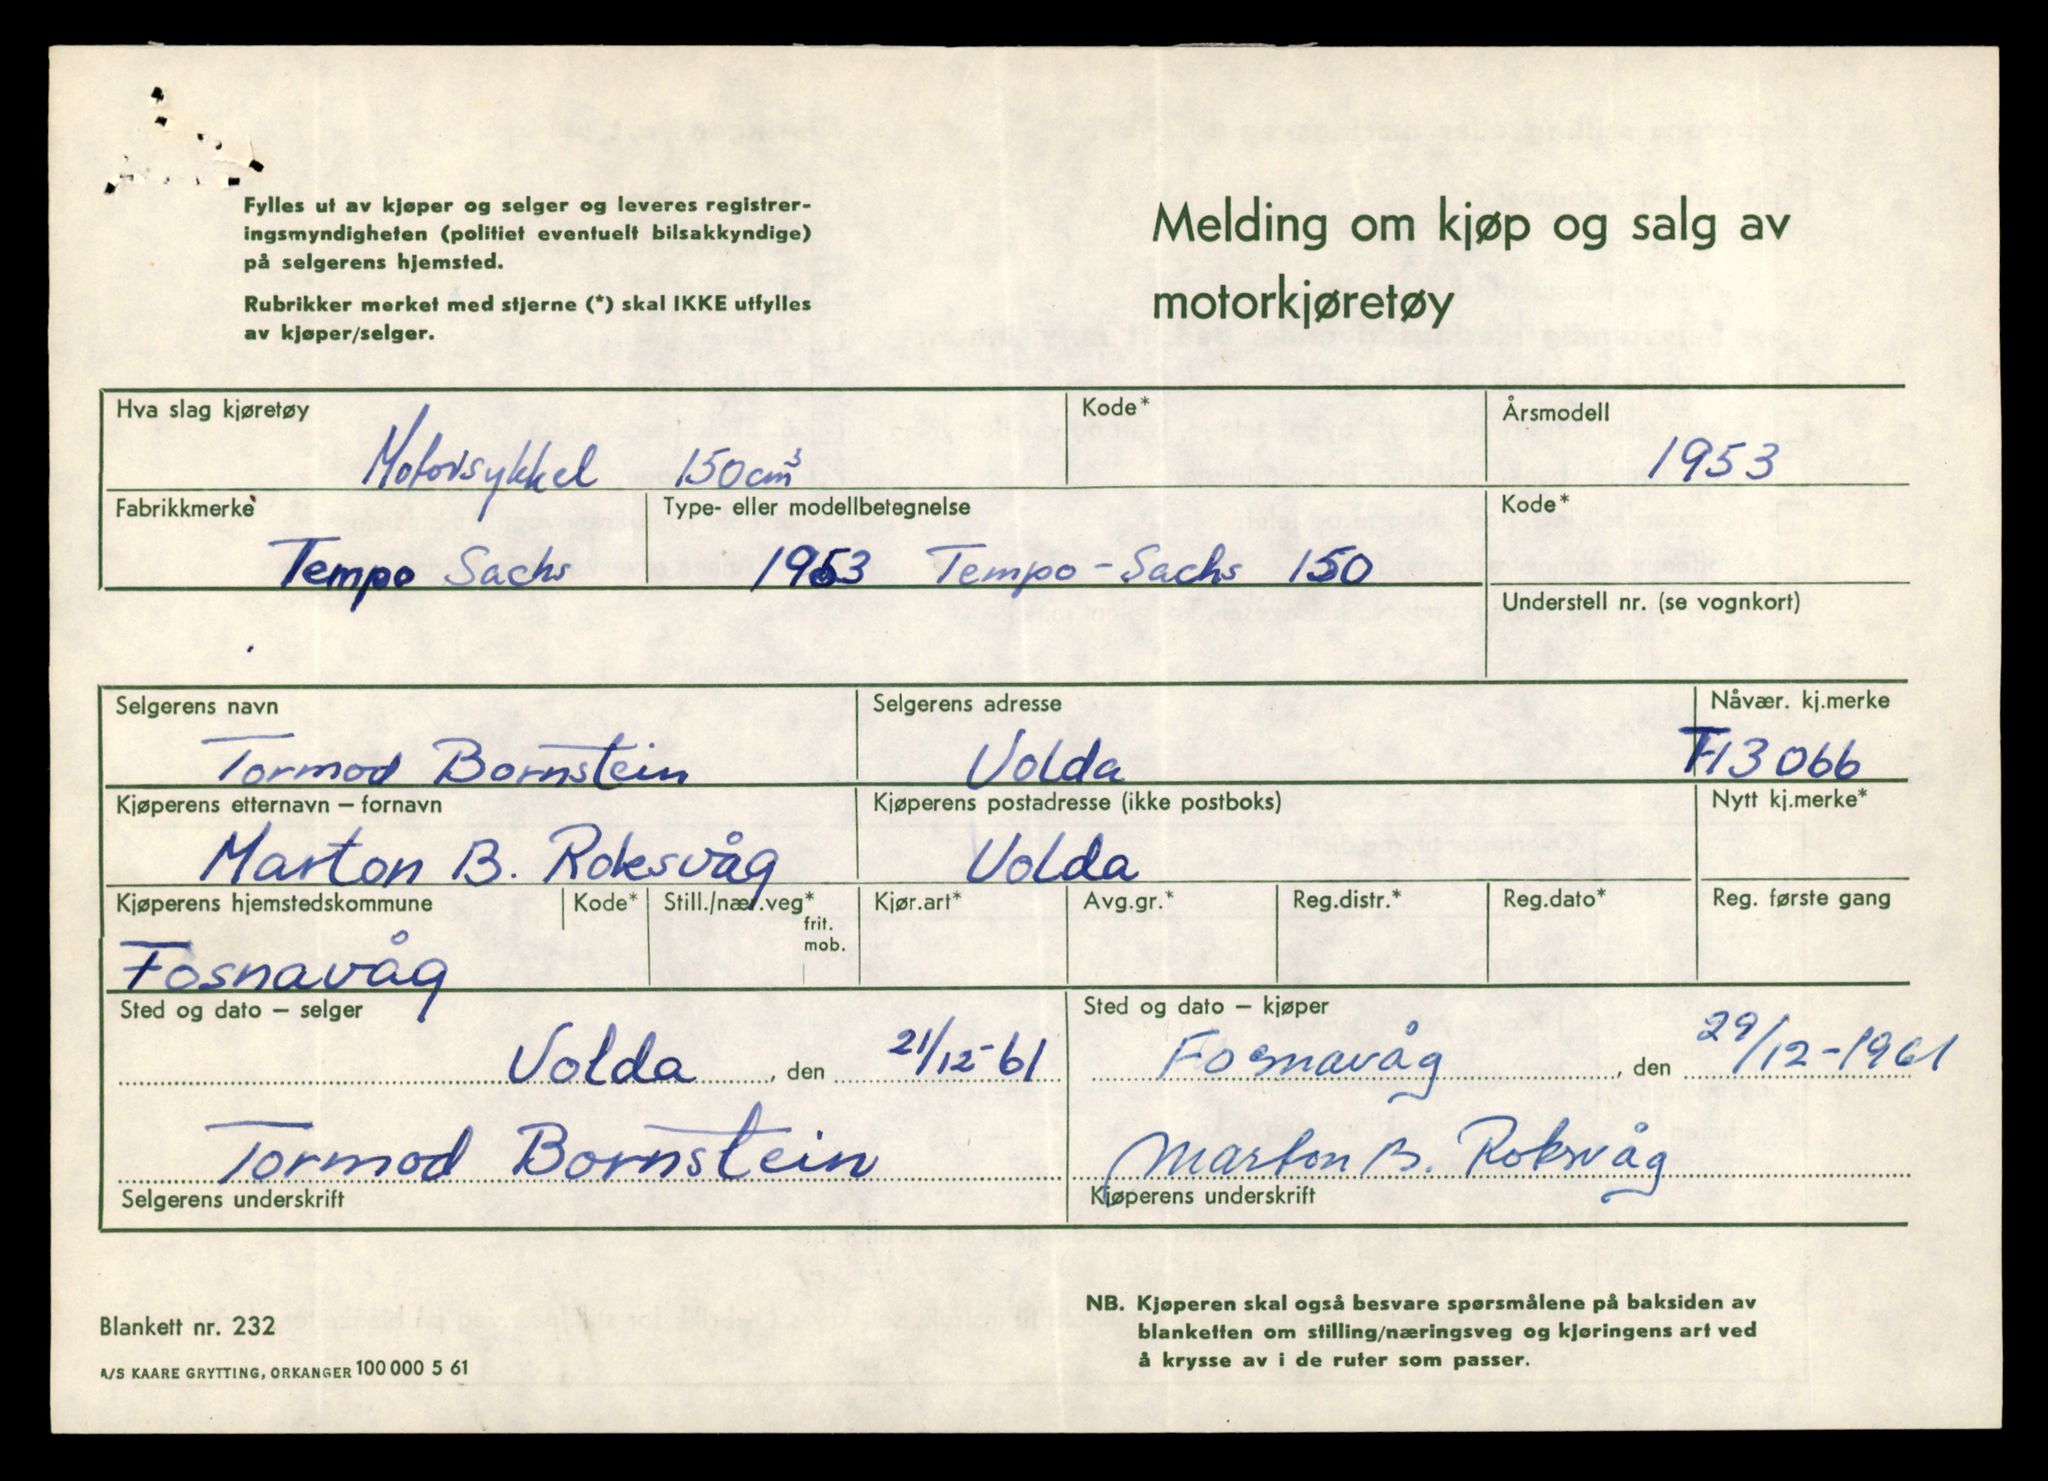 Fylles ut av kjøper og selger og leveres registrer-
ingsmyndigheten (politiet eventuelt bilsakkyndige)
på selgerens hjemsted.
Rubrikker merket med stjerne (*) skal IKKE utfylles
av kjøper/selger.
Melding om kjøp og salg av
motorkjøretøy
Hva slag kjøretøy
Motorsykkel 150 cm³
Kode*
Årsmodell
1953
Fabrikkmerke
Tempo Sachs
Type- eller modellbetegnelse
1953 Tempo-Sachs 150
Kode*
Understell nr. (se vognkort)
Selgerens navn
Tormod Bornstein
Selgerens adresse
Volda
Nåvær. kj.merke
T13066
Kjøperens etternavn – fornavn
Marton B. Roksvåg
Kjøperens postadresse (ikke postboks)
Volda
Nytt kj.merke*
Kjøperens hjemstedskommune
Fosnavåg
Kode*
Still./nær.veg*
frit.
mob.
Kjør.art*
Avg.gr.*
Reg.distr.*
Reg.dato*
Reg. første gang
Sted og dato – selger
Volda, den 21/12-61
Tormod Bornstein
Selgerens underskrift
Sted og dato – kjøper
Fosnavåg, den 29/12-1961
Marton B. Roksvåg
Kjøperens underskrift
Blankett nr. 232
A/S KAARE GRYTTING, ORKANGER 100 000 5 61
NB. Kjøperen skal også besvare spørsmålene på baksiden av
blanketten om stilling/næringsveg og kjøringens art ved
å krysse av i de ruter som passer.